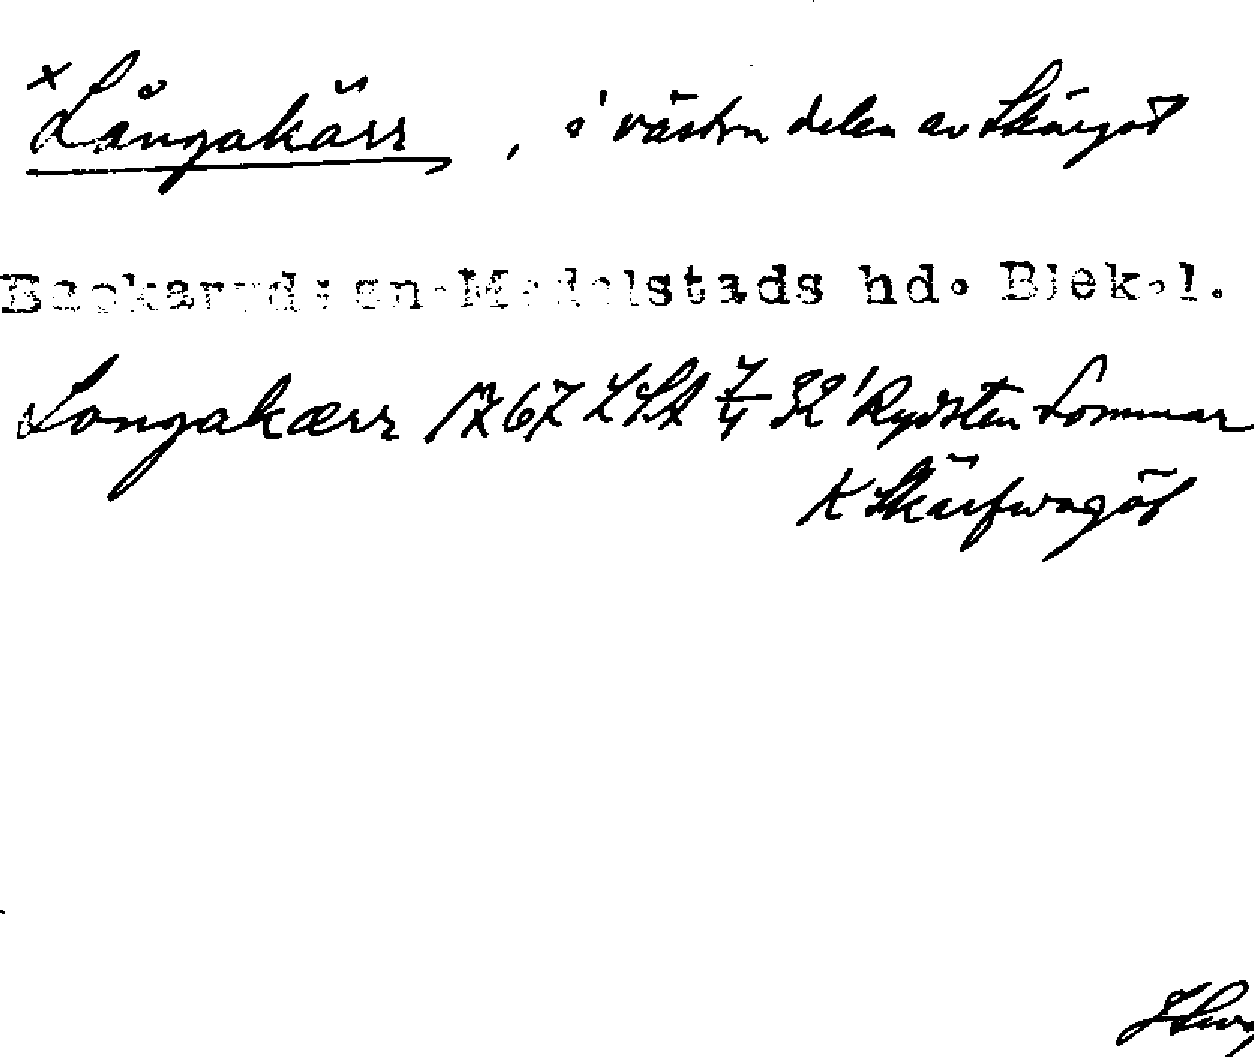 x Långakärr, i västra delen av Skärgöl
Backaryds sn. Medelstads hd. Blek.l.
Longakærr 1767 LSA 7/4 32 Rydsten Sommar
K Skärfwagöl